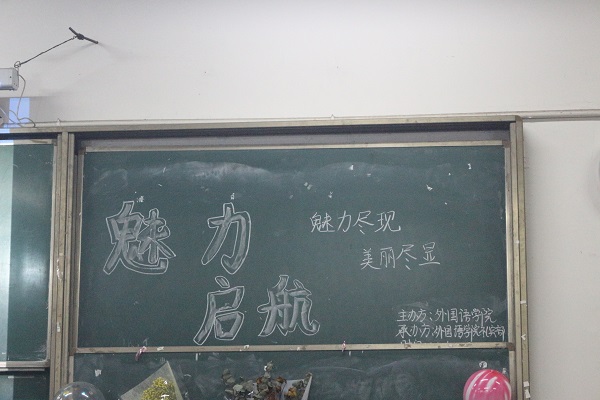 魅力
启航
魅力尽现
美丽尽显
主办方:外国语学院
承办方:外国语学院礼仪部